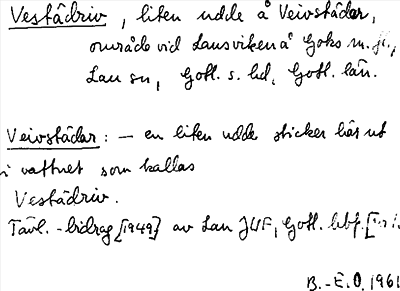 Vestädriv, liten udde å Veivstädar,
område vid Lausviken å Goks m.fl.,
Lau sn, Gotl. s. hd, Gotl. län.
Veivstädar: – en liten udde sticker här ut
i vattnet som kallas
Vestädriv.
Tävl.-bidrag [1949] av Lau JUF, Gotl. bbf.
B.-E.O. 1961